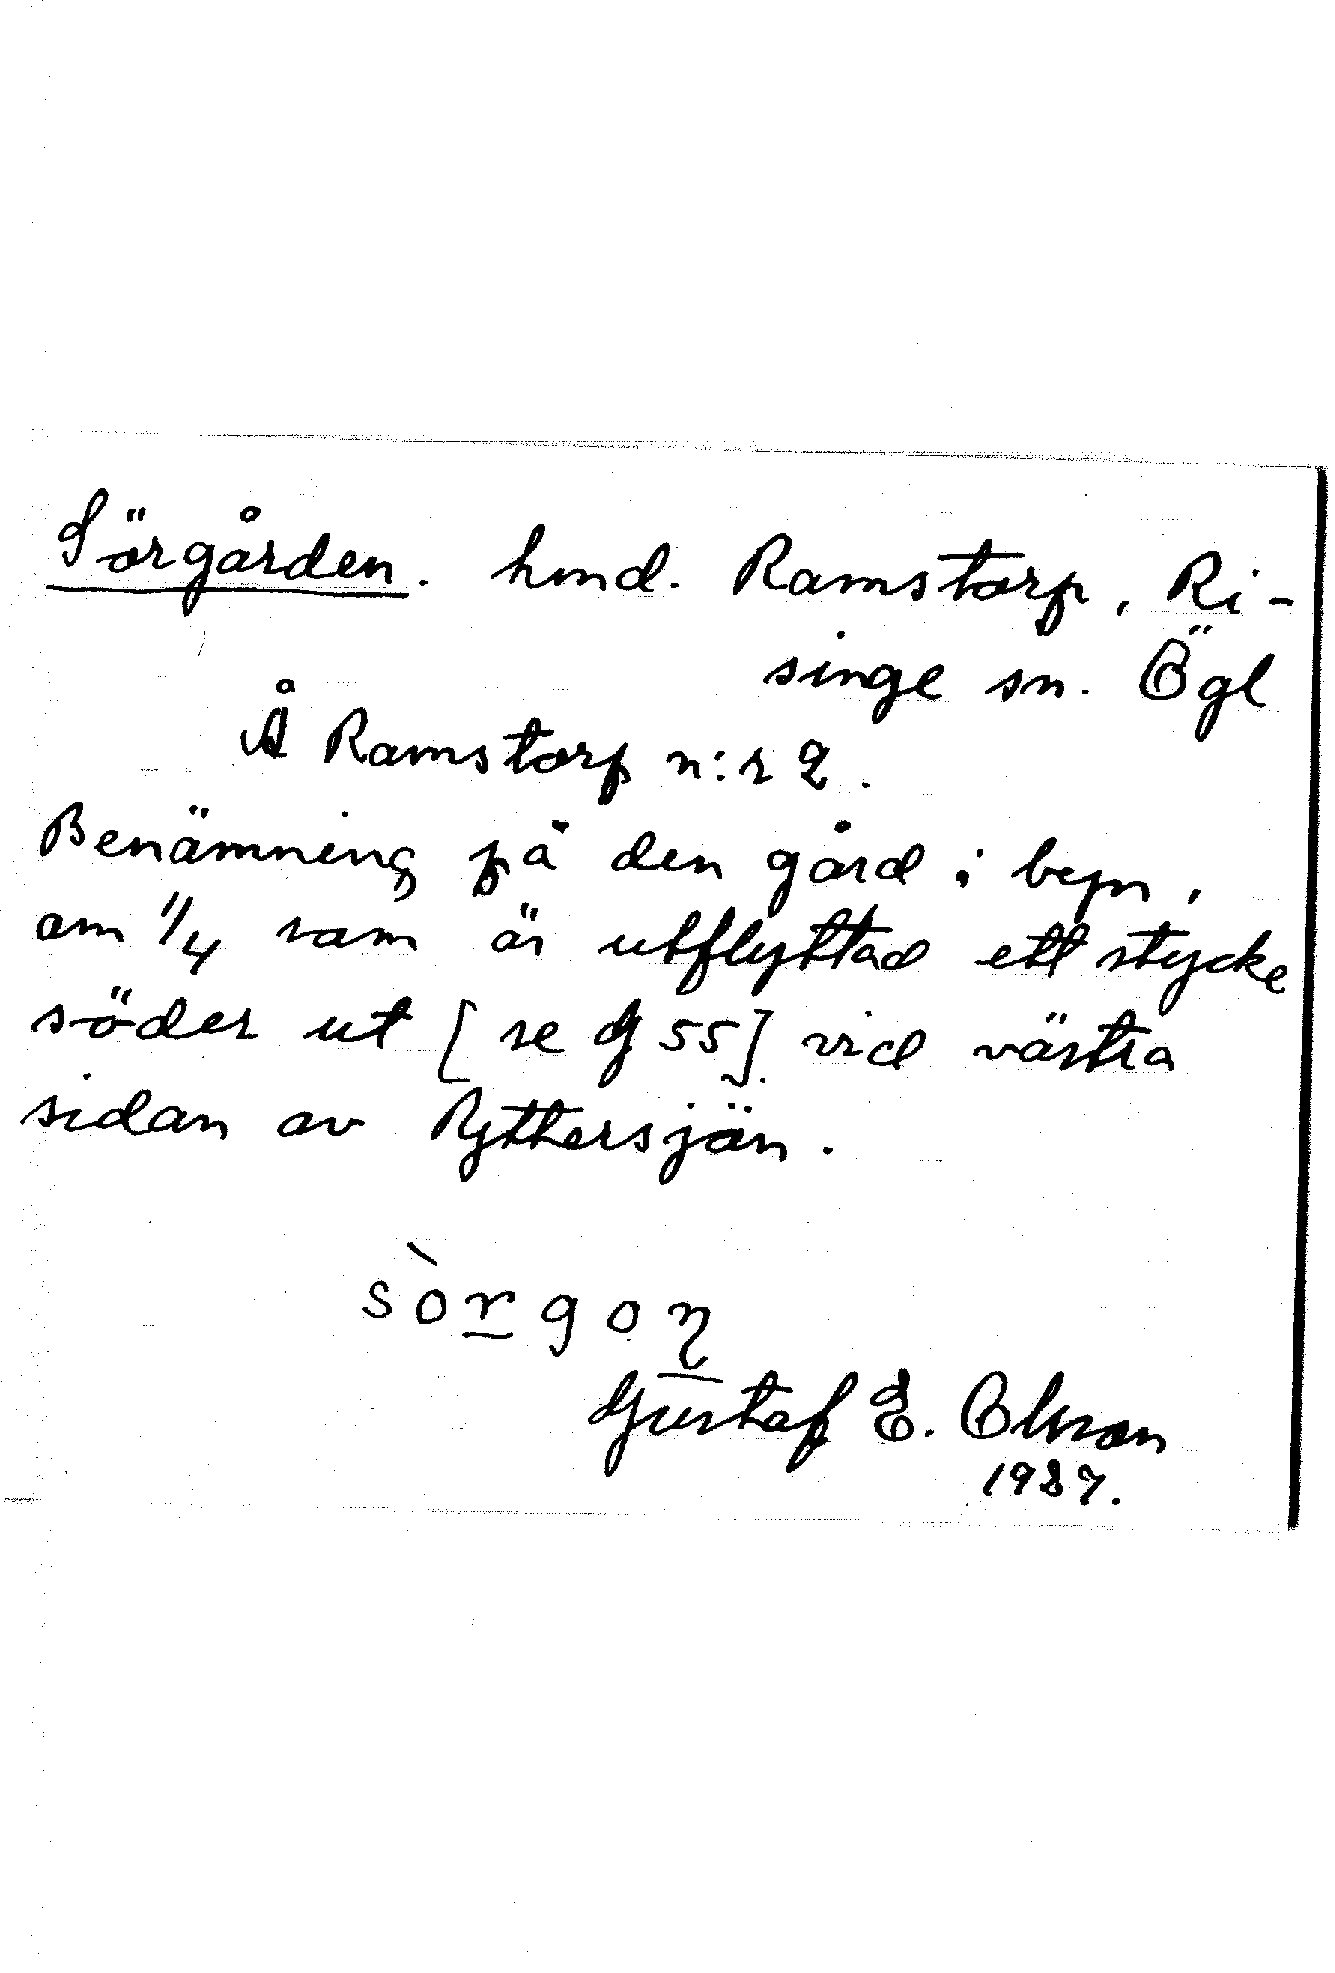 Sörgården. hmd. Ramstorp, Ri-
singe sn. Ögl
Å Ramstorp n:r 2.
Benämning på den gård i byn,
om 1/4 som är utflyttad ett stycke
söder ut [se G 55] vid västra
sidan av Ryttersjön.
sòrgoɳ
Gustaf E. Olsson
1937.